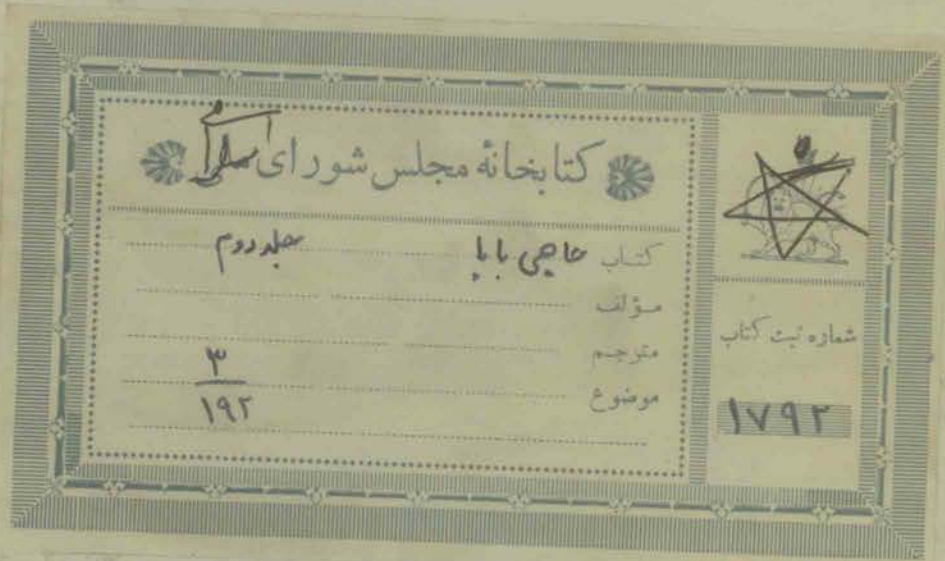 کتابخانهٔ مجلس شورای اسلامی
کتاب حاجی بابا جلد دوم
مؤلف
مترجم
موضوع
۳
۱۹۲
شماره ثبت کتاب
۱۷۹۲